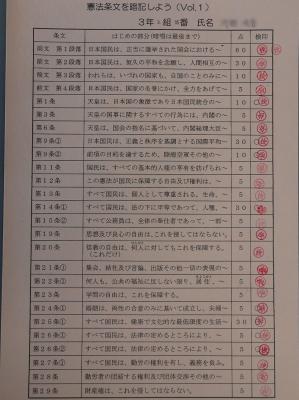 憲法条文を暗記しよう（Vol.1）
3年 組 番 氏名
条文 はじめの部分(暗唱は最後まで) 点 検印
前文 第1段落 日本国民は、正当に選挙された国会における～ 60
前文 第2段落 日本国民は、恒久の平和を念願し、人間相互の～ 30
前文 第3段落 われらは、いづれの国家も、自国のことのみに～ 10
前文 第4段落 日本国民は、国家の名誉にかけ、全力をあげて～ 5
第1条 天皇は、日本国の象徴であり日本国民統合の～ 10
第3条 天皇の国事に関するすべての行為には、内閣の～ 5
第6条 天皇は、国会の指名に基づいて、内閣総理大臣～ 5
第9条① 日本国民は、正義と秩序を基調とする国際平和～ 30
第9条② 前項の目的を達するため、陸海空軍その他の～ 10
第11条 国民は、すべての基本的人権の享有を妨げられ～ 5
第12条 この憲法が国民に保障する自由及び権利は、～ 5
第13条 すべて国民は、個人として尊重される。生命、～ 5
第14条① すべて国民は、法の下に平等であって、人種、～ 30
第15条② すべて公務員は、全体の奉仕者であって、一部～ 5
第19条 思想及び良心の自由は、これを侵してはならない。 5
第20条 信教の自由は、何人に対してもこれを保障する。
(これだけ) 5
第21条① 集会、結社及び言論、出版その他一切の表現の～ 5
第22条① 何人も、公共の福祉に反しない限り、居住、～ 5
第23条 学問の自由は、これを保障する。 5
第24条① 婚姻は、両性の合意のみに基いて成立し、夫婦～ 5
第25条① すべて国民は、健康で文化的な最低限度の生活～ 30
第26条① すべて国民は、法律の定めるところにより、～ 5
第26条② すべて国民は、法律の定めるところにより、～ 5
第27条① すべて国民は、勤労の権利を有し、義務を負ふ。 5
第28条 勤労者の団結する権利及び団体交渉その他の～ 5
第29条 財産権は、これを侵してはならない。 5